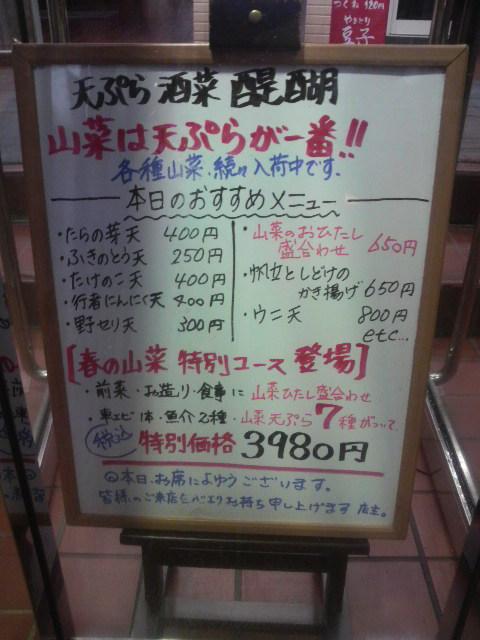 つくね 120円
やきとり
天ぷら 酒菜 醍醐
山菜は天ぷらが一番!!
各種山菜、続々入荷中です。
本日のおすすめメニュー
・たらの芽天 400円
・ふきのとう天 250円
・たけのこ天 400円
・行者にんにく天 400円
・野セリ天 300円
・山菜のおひたし
盛合わせ 650円
・帆立としどけの
かき揚げ 650円
・ウニ天 800円
etc...
[春の山菜 特別コース 登場]
・前菜・お造り・食事に 山菜ひたし盛合わせ
・車エビ1本・魚介2種・山菜天ぷら7種がついて
税込 特別価格 3980円
◎本日、お席によゆうございます。
皆様のご来店を心よりお待ち申し上げます 店主。